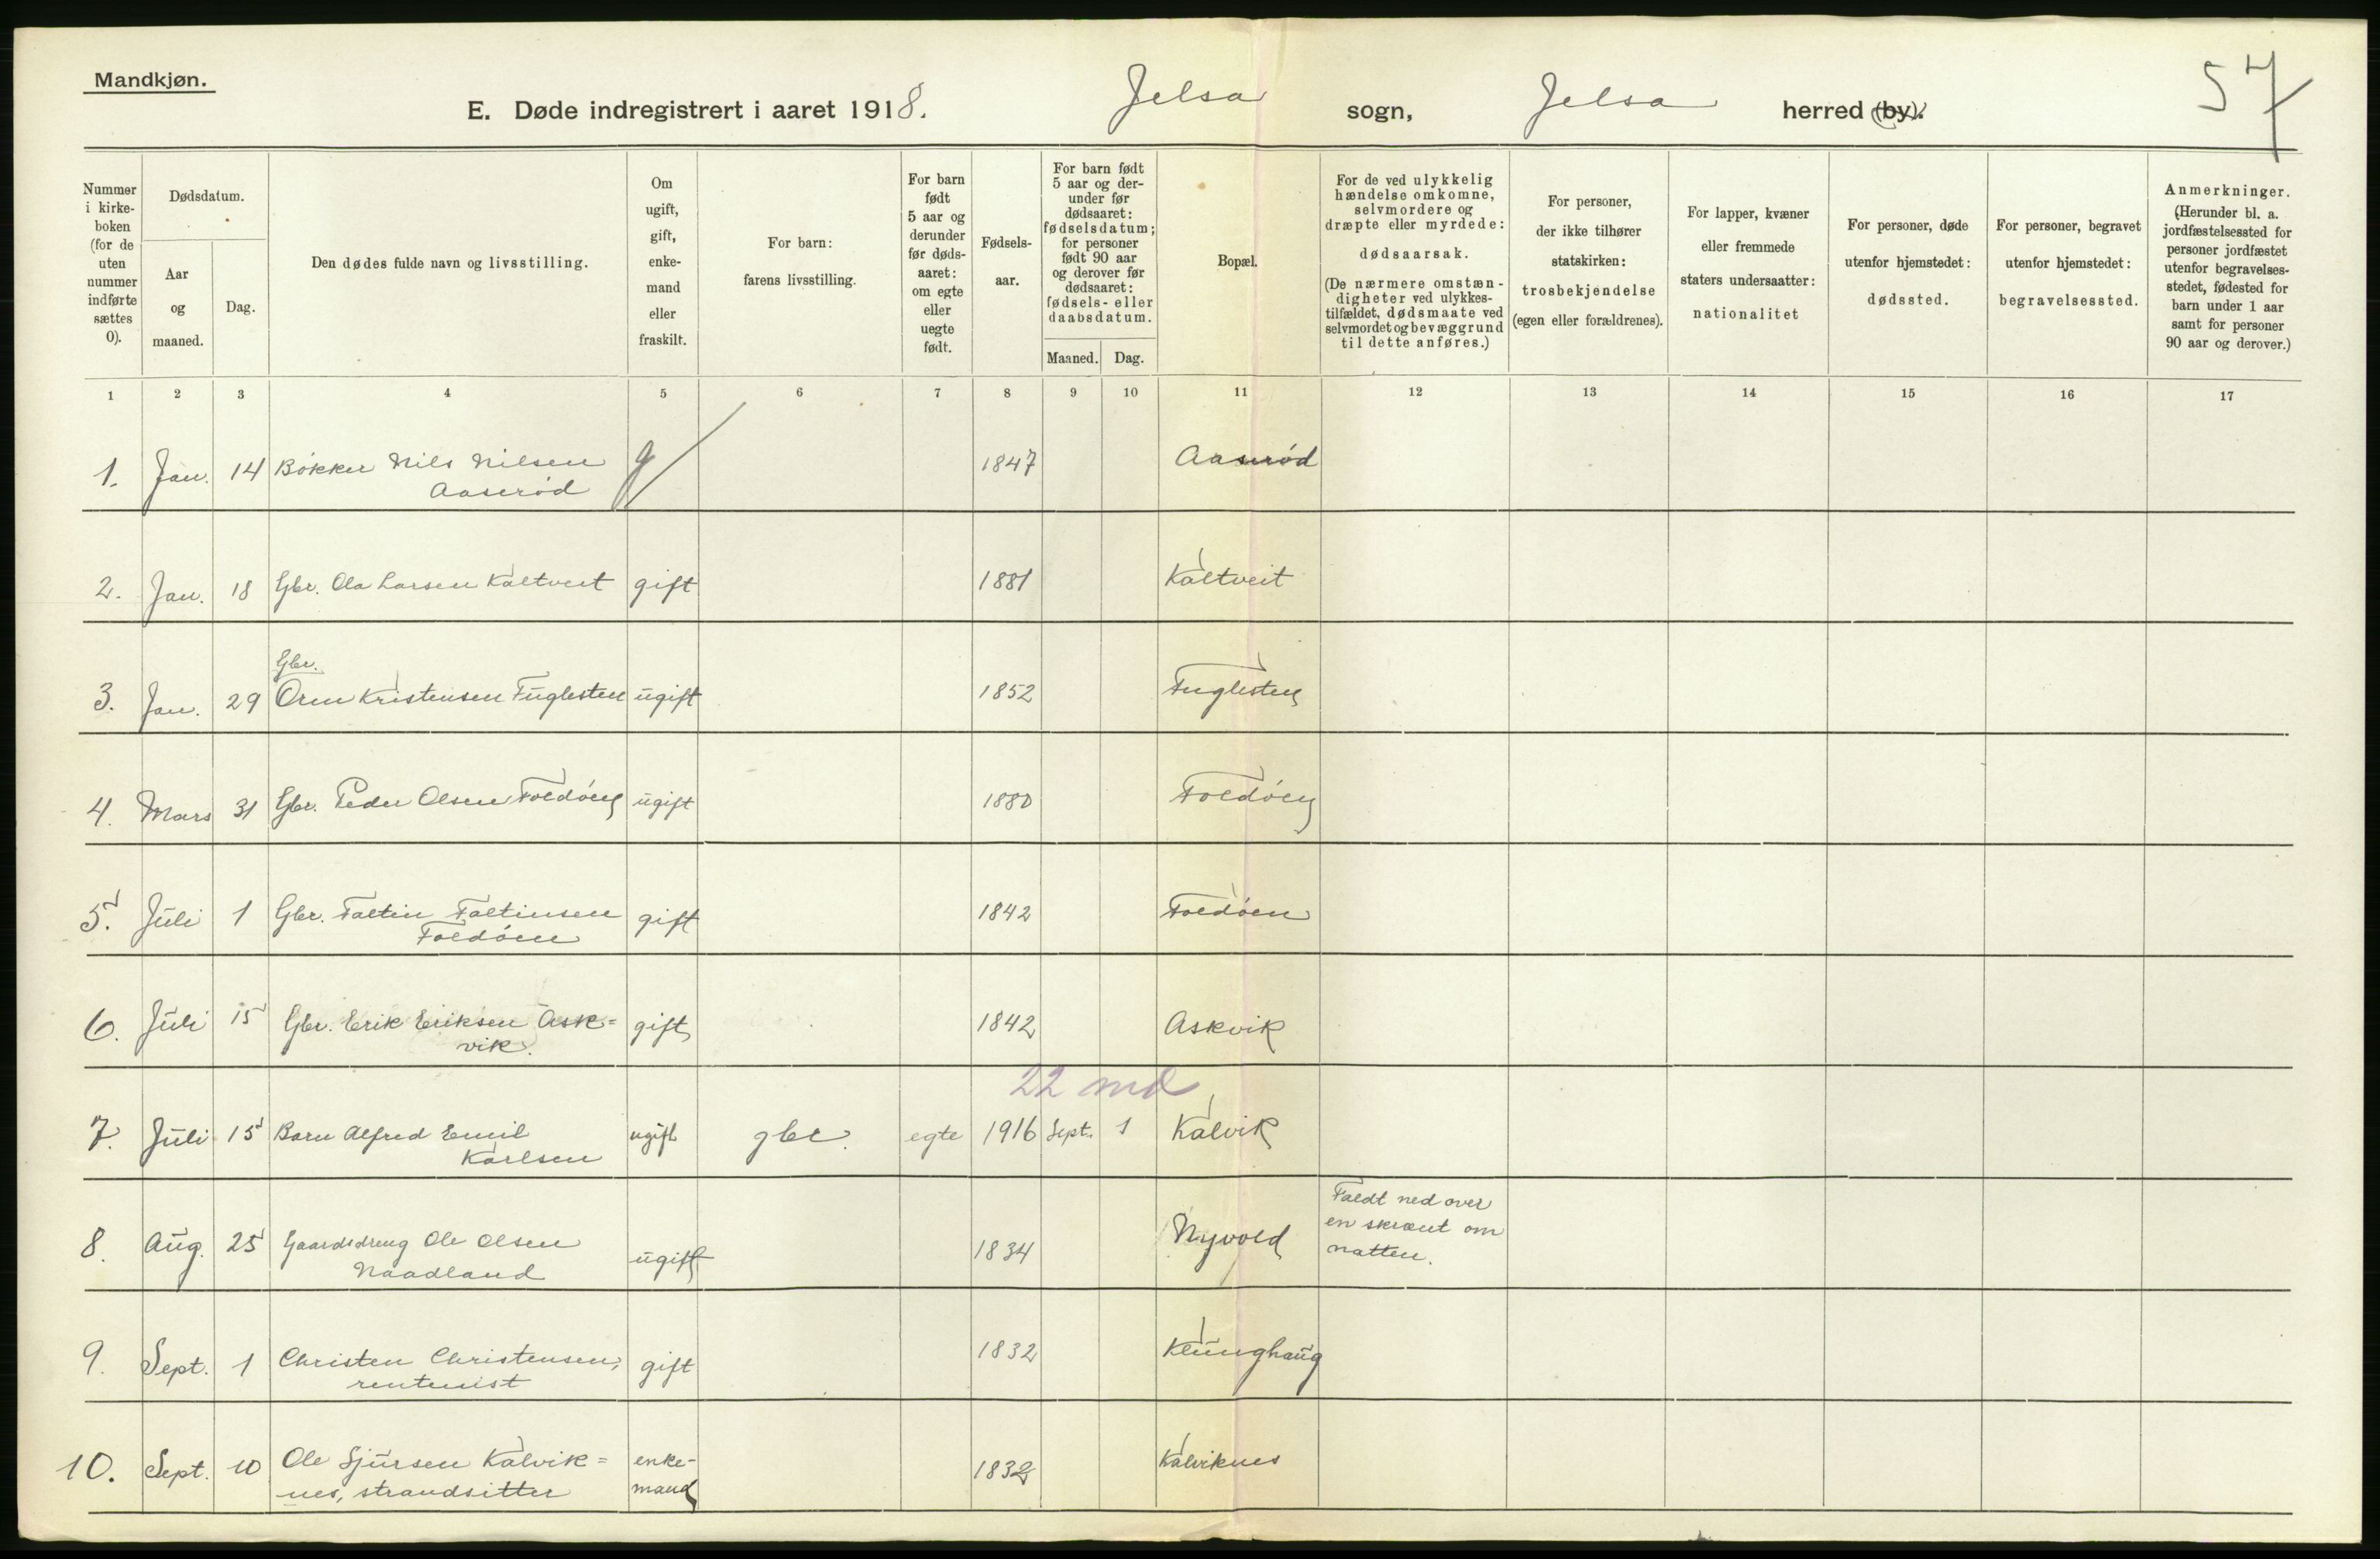 Mandkjøn.
E. Døde indregistrert i aaret 1918. Jelsa sogn, Jelsa herred (by).
57
Nummer i kirke- boken (for de uten nummer indførte sættes 0).
Dødsdatum.
Aar og maaned.
Dag.
Den dødes fulde navn og livsstilling.
Om ugift, gift, enke- mand eller fraskilt.
For barn: farens livsstilling.
For barn født 5 aar og derunder før døds- aaret: om egte eller uegte født.
Fødsels- aar.
For barn født 5 aar og der- under før dødsaaret: fødselsdatum; for personer født 90 aar og derover før dødsaaret: fødsels- eller daabsdatum.
Maaned. Dag.
Bopæl.
For de ved ulykkelig hændelse omkomne, selvmordere og dræpte eller myrdede: dødsaarsak. (De nærmere omstæn- digheter ved ulykkes- tilfældet, dødsmaate ved selvmordet og bevæggrund til dette anføres.)
For personer, der ikke tilhører statskirken: trosbekjendelse (egen eller forældrenes).
For lapper, kvæner eller fremmede staters undersaatter: nationalitet
For personer, døde utenfor hjemstedet: dødssted.
For personer, begravet utenfor hjemstedet: begravelsessted.
Anmerkninger. (Herunder bl. a. jordfæstelsessted for personer jordfæstet utenfor begravelses- stedet, fødested for barn under 1 aar samt for personer 90 aar og derover.)
1 2 3 4 5 6 7 8 9 10 11 12 13 14 15 16 17
1. Jan. 14 Bøkker Nils Nilsen g 1847 Aaserød
Aaserød
2. Jan. 18 Gbr. Ola Larsen Kaltveit gift 1881 Kaltveit
Gbr.
3. Jan. 29 Orm Kristensen Fuglesten ugift 1852 Fuglesten
4. Mars 31 Gbr. Peder Olsen Foldøen ugift 1880 Foldøen
5. Juli 1 Gbr. Faltin Faltinsen gift 1842 Foldøen
Foldøen
6. Juli 15 Gbr. Erik Eriksen Ask= gift 1842 Askvik
vik.
22 md
7. Juli 15 Barn Alfred Emil ugift gbr. egte 1916 Sept. 1 Kalvik
Karlsen
Faldt ned over
8. Aug. 25 Gaardsdreng Ole Olsen ugift 1834 Nyvold en skrænt om
Naadland natten.
9. Sept. 1 Christen Christensen, gift 1832 Klunghaug
rentenist
10. Sept. 10 Ole Sjursen Kalvik= enke- 1832 Kalviknes
nes, strandsitter mand